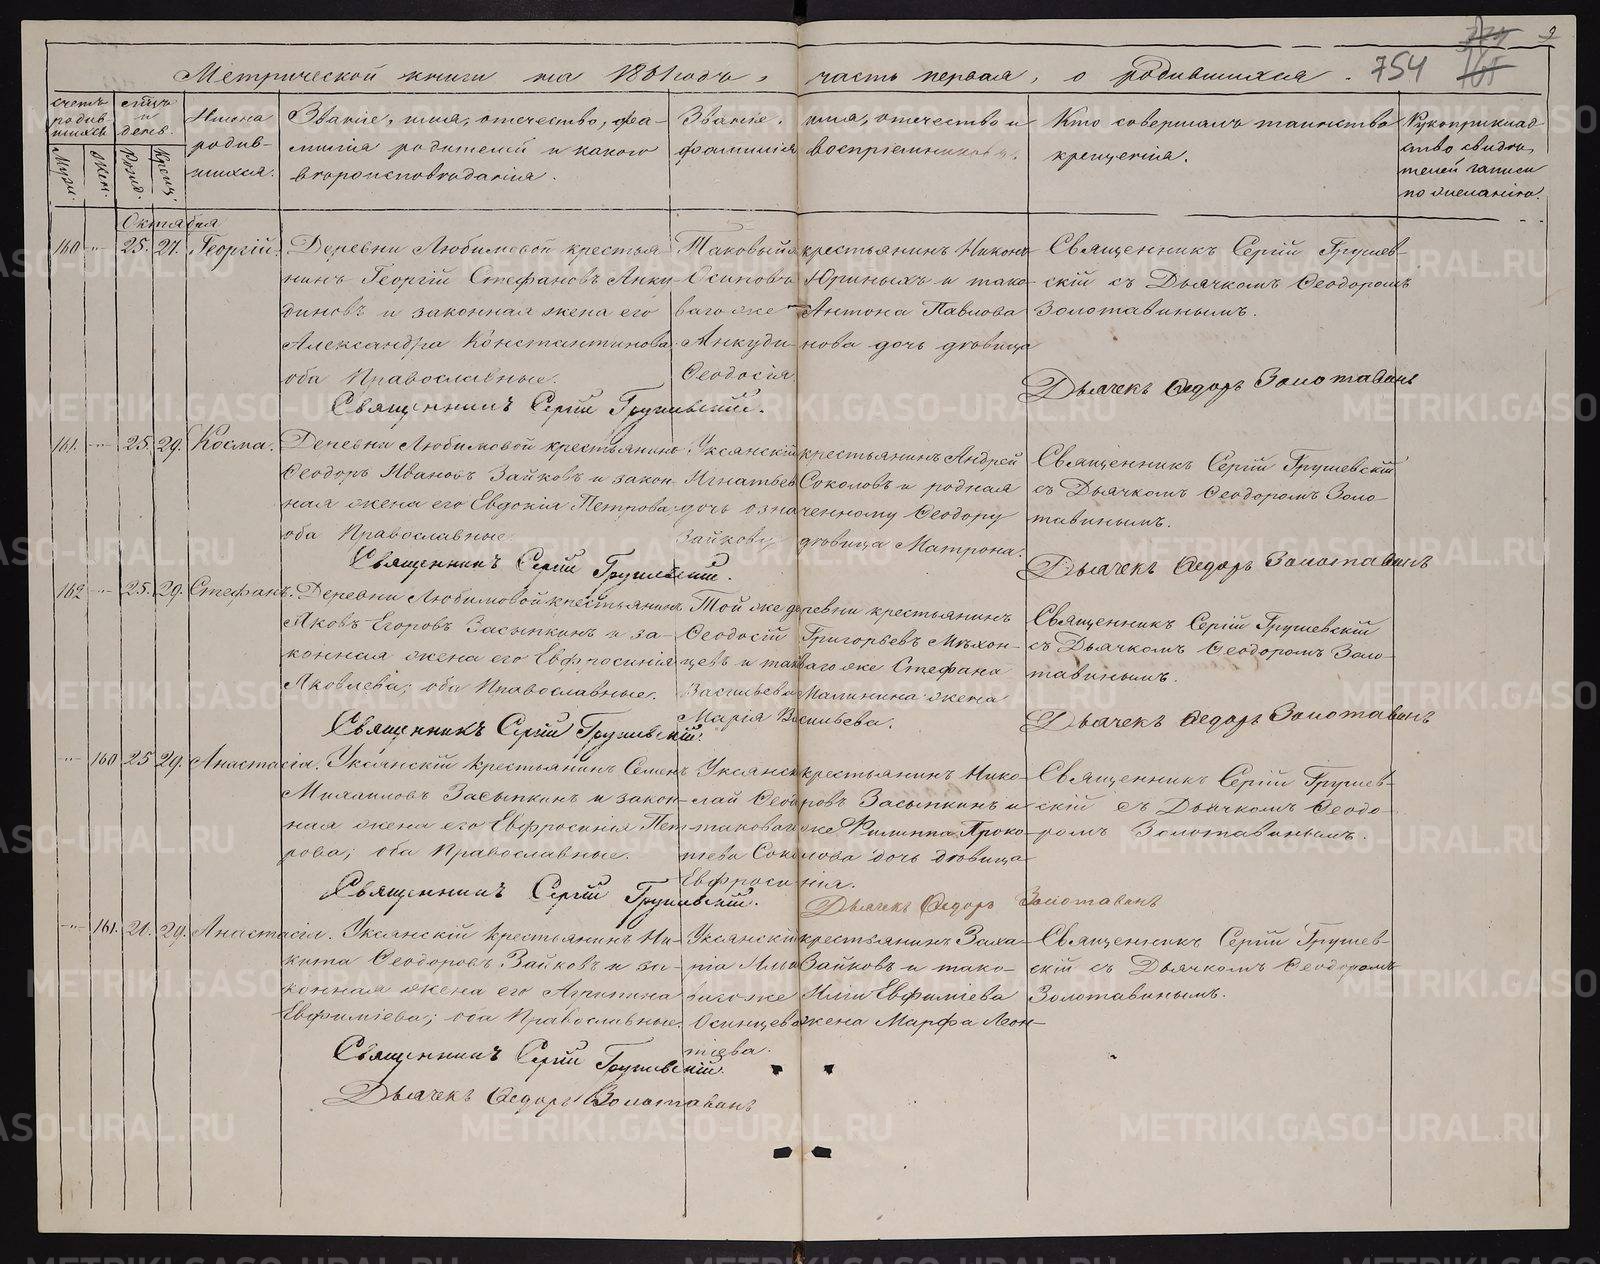 Метрической книги на 1861 годъ, часть первая, о родившихся. 754
Счетъ родившихся.
Муж. Жен.
Мѣсяцъ и день.
Рожд. Крещ.
Имена родившихся.
Званіе, имя, отечество, фамилія родителей и какого вѣроисповѣданія.
Званіе, имя, отечество и фамилія воспріемниковъ.
Кто совершалъ таинство крещенія.
Рукоприкладство свидѣтелей записи по желанію.
Октября
160 25. 27. Георгій.
Деревни Любимовой крестья-
нинъ Георгій Стефановъ Анку-
диновъ и законная жена его
Александра Константинова
оба Православные.
Священникъ Сергій Грушевскій.
Таковыйже крестьянинъ Никонъ
Осиповъ Юриныхъ и тако-
ваго же Антона Павлова
Анкуди-нова дочь дѣвица
Ѳеодосія
Священникъ Сергій Грушев-
скій съ Дьячкомъ Ѳеодоромъ
Золотавинымъ.
Дьячекъ Ѳедоръ Золотавинъ
161. 25. 29. Косма.
Деревни Любимовой крестьянинъ
Ѳеодоръ Ивановъ Зайковъ и закон-
ная жена его Евдокія Петрова
оба Православные.
Священникъ Сергій Грушевскій.
Уксянскій крестьянинъ Андрей
Игнатьевъ Соколовъ и родная
дочь означенному Ѳеодору
Зайкову дѣвица Матрона.
Священникъ Сергій Грушевскій
съ Дьячкомъ Ѳеодоромъ Золо-
тавинымъ.
Дьячекъ Ѳедоръ Золотавинъ
162 25. 29. Стефанъ.
Деревни Любимовой крестьянинъ
Яковъ Егоровъ Засыпкинъ и за-
конная жена его Евфросинія
Яковлева; оба Православные.
Священникъ Сергій Грушевскій.
Той же деревни крестьянинъ
Ѳеодосій Григорьевъ Мѣхон-
цевъ и таковаго же Стефана
Васильева Малинина жена
Марія Васильева.
Священникъ Сергій Грушевскій
съ Дьячкомъ Ѳеодоромъ Золо-
тавинымъ.
Дьячекъ Ѳедоръ Золотавинъ
160 25 29. Анастасія.
Уксянскій крестьянинъ Семенъ
Михаиловъ Засыпкинъ и закон-
ная жена его Евфросинія Пет-
рова; оба Православные.
Священникъ Сергій Грушевскій.
Уксянскій крестьянинъ Нико-
лай Ѳеодоровъ Засыпкинъ и
таковаго же Филиппа Проко-
пьева Соколова дочь дѣвица
Евфросинія.
Дьячекъ Ѳедоръ Золотавинъ
Священникъ Сергій Грушев-
скій съ Дьячкомъ Ѳеодо-
ромъ Золотавинымъ.
161. 21. 29. Анастасія.
Уксянскій крестьянинъ Ни-
кита Ѳеодоровъ Зайковъ и за-
конная жена его Агрипина
Евфиміева; оба Православные.
Священникъ Сергій Грушевскій.
Дьячекъ Ѳедоръ Золотавинъ
Уксянскій крестьянинъ Заха-
рій Ильи Зайковъ и тако-
ваго же Иліи Евфиміева
Осинцева жена Марфа Леон-
тіева.
Священникъ Сергій Грушев-
скій съ Дьячкомъ Ѳеодоромъ
Золотавинымъ.
METRIKI.GASO-URAL.RU